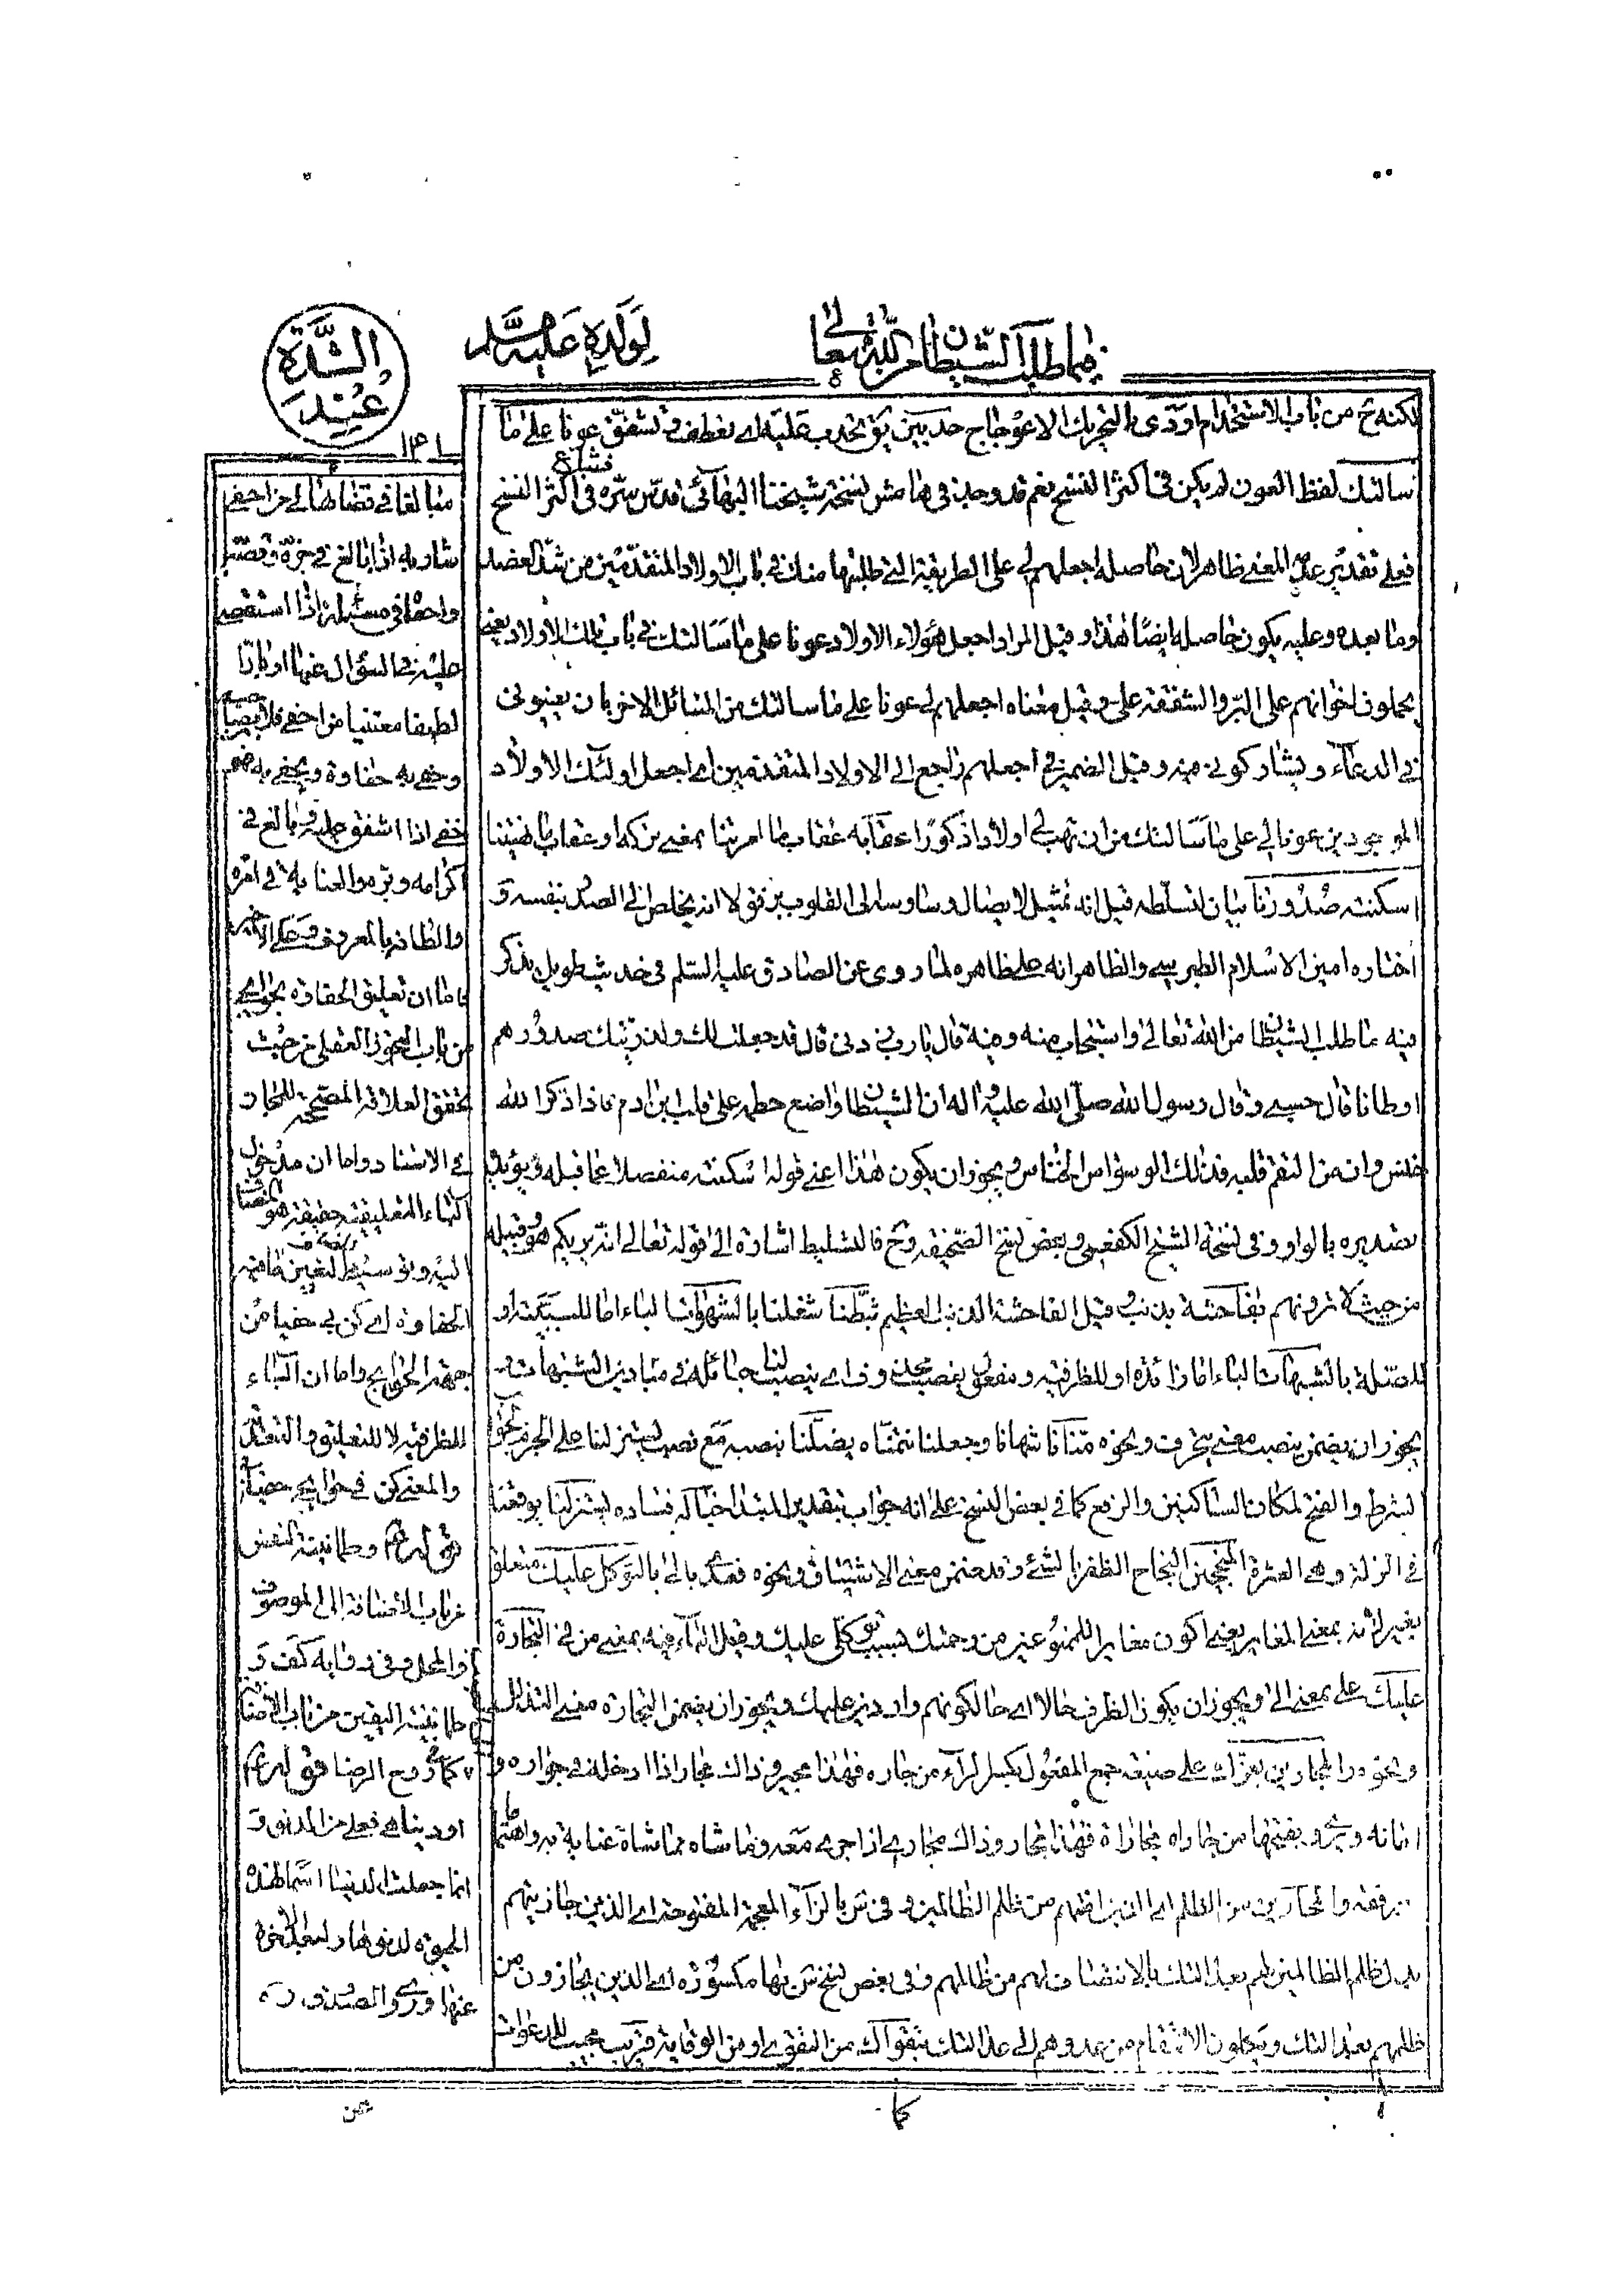 فيما طلب الشيطان من الله تعالى
لولده عليه السلم
عند
الشدة
١٤١
لكنه ح من باب الاستخدام اودى بالتحريك الاعوجاج حدبين يق تحدب عليه اى تعطف تشفق عونا على ما
سالتك لفظ العون لم يكن فى اكثر النسخ نعم قد وجد فى هامش نسخة شيخنا البهائى قدس سره فى اكثر النسخ
فعلى تقدير المعنى ظاهر لان حاصله اجعلهم لى على الطريقة التى طلبتها منك فى باب الاولاد المتقدمين من شد العضد
وما بعده وعليه يكون حاصله ايضا هذا وقيل المراد اجعل هؤلاء الاولاد عونا على ما سالتك فى باب تلك الاولاد يعنى
يحملون اخوانهم على البر والشفقة على وقيل معناه اجعلهم لى عونا على ما سالتك من المسائل الاخر بان يعينونى
فى الدعاء ويشاركونى فيه وقيل الضمير فى اجعلهم راجع الى الاولاد المتقدمين اى اجعل اولئك الاولاد
الموجودين عونا لى على ما سالتك من ان تهب لى اولادا ذكورا عقابه عقاب ما امرتنا بمعنى تركه او عقاب ما نهيتنا
اسكنته صدورنا بيان لتسلطه قيل انه تمثيل لايصال وساوسه الى القلوب برفق لا انه يخلص الى الصدر بنفسه و
اختاره امين الاسلام الطبرسى والظاهر انه على ظاهره لما روى عن الصادق عليه السلم فى حديث طويل يذكر
فيه ما طلب الشيطان من الله تعالى واستجاب منه وفيه قال يا رب زدنى قال قد جعلت لك ولذريتك صدورهم
اوطانا قال حسبى وقال رسول الله صلى الله عليه واله ان الشيطان واضع خطمه على قلب ابن ادم فاذا ذكر الله
خنس وان من التقم قلبه فذلك الوسواس الخناس ويجوز ان يكون هذا اعنى قوله اسكنته منفصلا عما قبله ويؤيده
تصديره بالواو فى نسخة الشيخ الكفعمى وبعض نسخ الصحيفة وح فالتسليط اشارة الى قوله تعالى انه يريكم هو وقبيله
من حيث لا ترونهم بفاحشة بذنب وقيل الفاحشة الذنب العظيم ثبطنا شغلنا بالشهوات الباء اما للسببية او
للصلة بالشبهات الباء اما زائدة او للظرفية ومفعول ينصب محذوف اى ينصب لنا حبائله فى ميادين الشبهات
يجوز ان يضمن ينصب معنى ونحوه منانا شهانا وجعلنا نتمناه يضلنا بنصبه مع نصب يستزلنا على الجزم بحق
الشرط والفتح لمكان الساكنين والرفع كما فى بعض النسخ على انه جواب بتقدير المبتدا خباله فساده يستزلنا يوقعنا
فى الزلة وهى العثرة المنجحين النجاح الظفر بالشئ وقد ضمن معنى الاشتياق ونحوه فعدى بالى بالتوكل عليك متعلق
بغير لانه بمعنى المغاير يعنى اكون مغايرا للممنوعين من رحمتك بسبب توكلى عليك وقيل الباء فيه بمعنى من فى التجارة
عليك على بمعنى الى ويجوز ان يكون الظرف حالا اى حالكونهم واردين عليك ويجوز ان يضمن التجارة معنى التذلل
ونحوه والمجارين بعزك على صيغة جمع المفعول بكسر الراء من جاره فهذا مجير وذاك مجار اذا ادخله فى جواره و
امانه ويروى بفتحها من جاراه مجاراة فهذا مجار وذاك مجارى اذا جرى معه وماشاه مماشاة عناية به واهتماما
برفقه والمجارين من الظلم اى الذين انقذتهم من ظلم الظالمين وفى س بالزاء المعجمة المفتوحة اى الذين جازيتهم
بدل ظلم الظالمين لهم بعدلك بالانتقام لهم من ظالمهم وفى بعض نسخ س بها مكسورة اى الذين يجازون من
ظلمهم بعدلك ويكلون الانتقام من عدوهم الى عدلك بتقواك من التقوى او من الوقاية قريب مجيب للدعوات
كما
مبالغا فى قضائها لى من احفى
شاربه اذا بالغ فى جزه وقصه
واحفا فى مسئلة اذا استقصى
عليه فى السؤال عنها او بارا
لطيفا معتنيا من احفى فلان بصاحبه
وحفى به حفاوة وتحفى به فهو
حفى اذا اشفق عليه وبالغ فى
اكرامه وبره والعناية فى امره
والطافه بالمعروف وعلى الاخير
فاما ان تعليق الحفاوة بحوائجى
من باب التجوز العقلى من حيث
تحقق العلاقة المصححة للمجاز
فى الاسناد واما ان مدخول
الباء التعليقية حقيقة هو المضاف
اليه وتوسيط لتعيين ما فيه
الحفاوة اى كن بى حفيا من
جهة الحوائج واما ان الباء
للظرفية لا للتعليق والتعدية
والمعنى كن فى حوائجى حفيا
قوله وطمانينة النفس
من باب الاضافة الى الموصوف
والمحل وفى رواية كف و
طمانينة اليقين من باب الاضافة
كما فى روح الرضا قوله
او دنيا هى فعلى من الدنو و
انما جعلت الدنيا اسما لهذه
الحيوة لدنوها ولبعد الاخرة
عنها
من